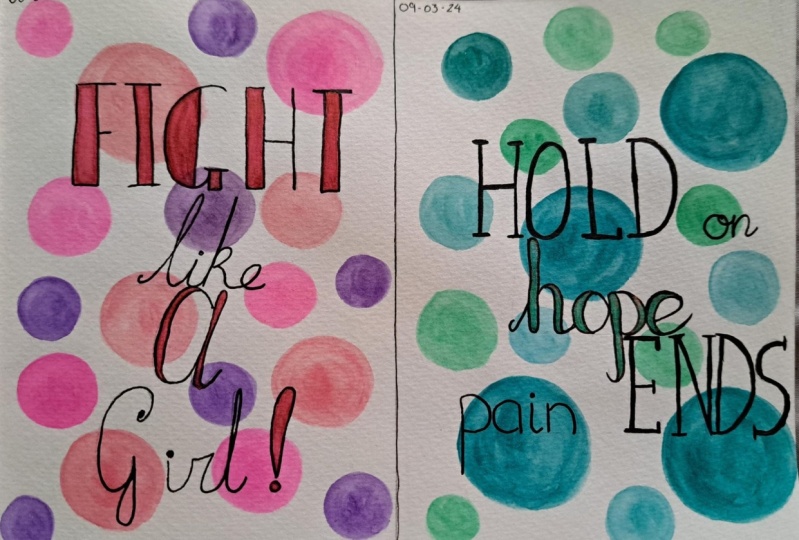 FIGHT
like
A
Girl!
09-03-24
HOLD on
hope
ENDS
pain